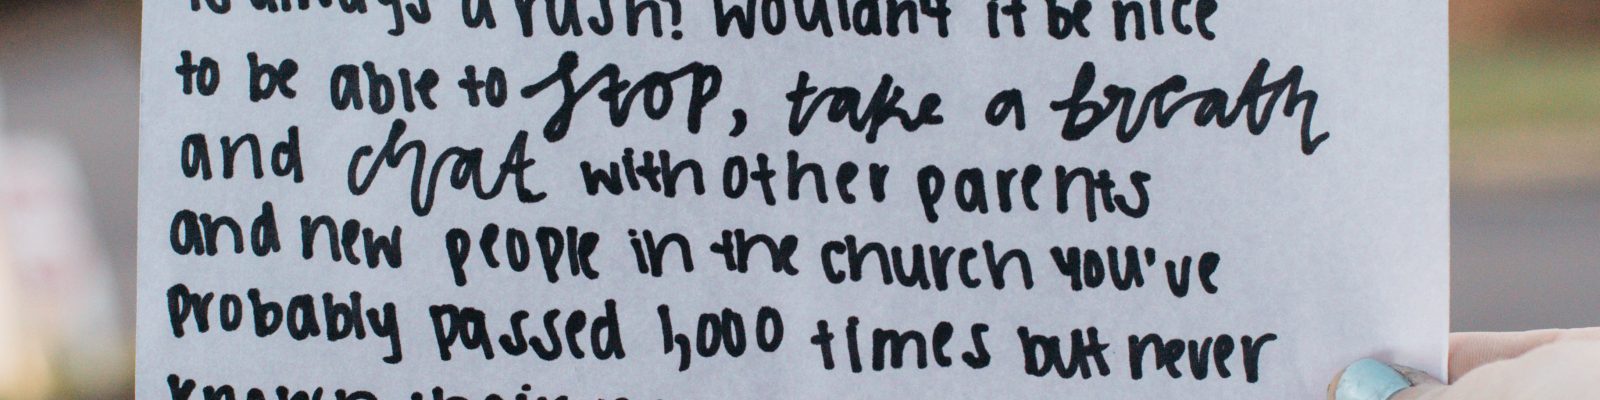 is always a rush! Wouldn't it be nice
to be able to stop, take a breath
and chat with other parents
and new people in the church you've
probably passed 1,000 times but never
known their